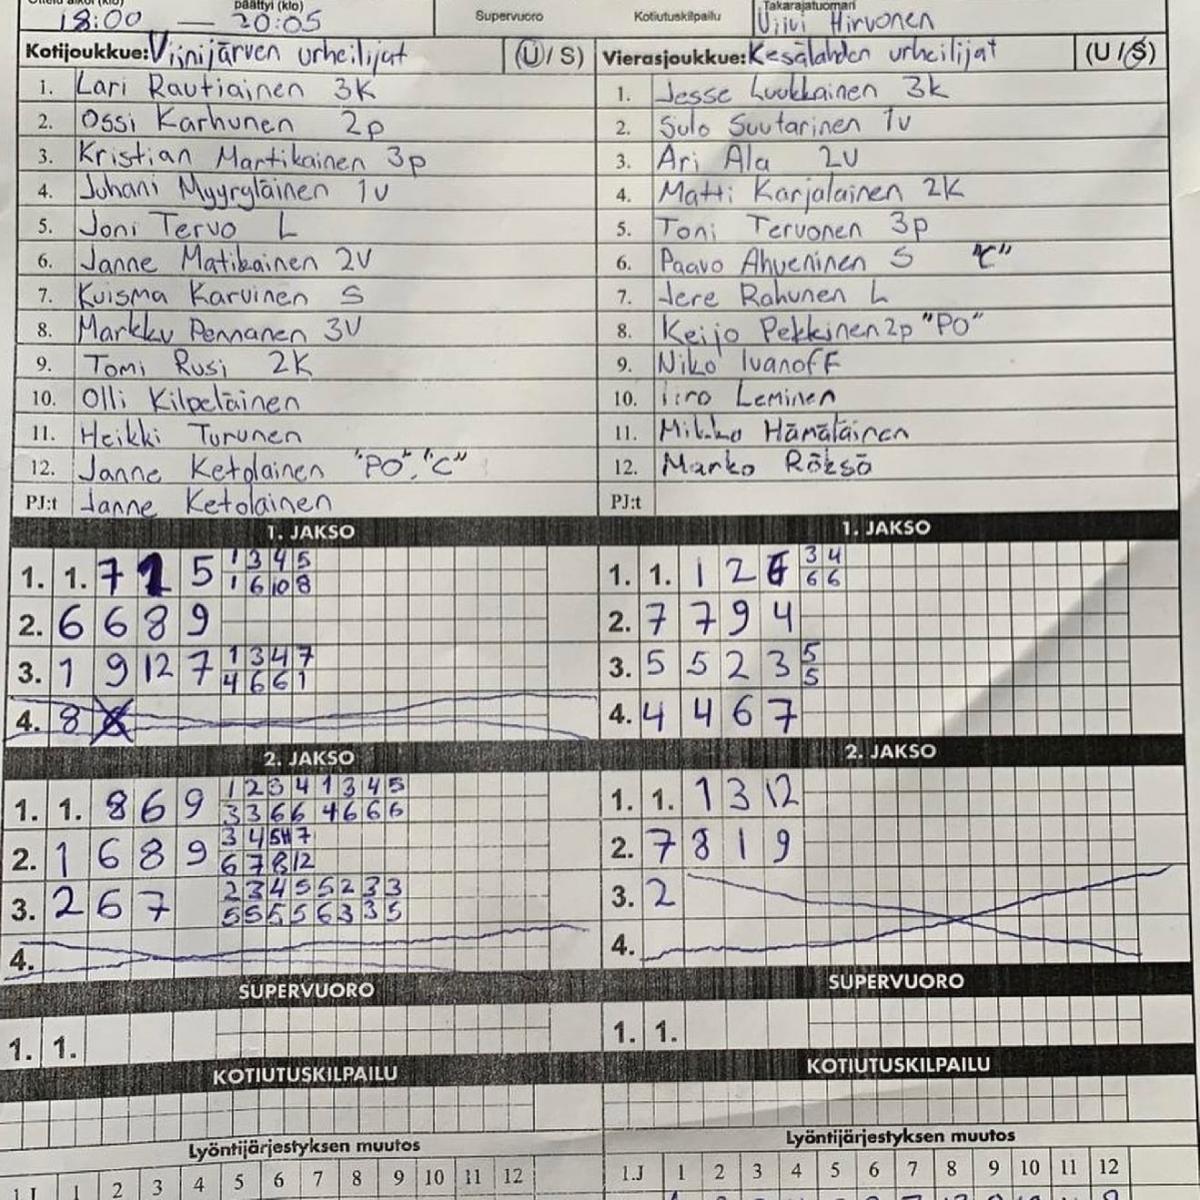 päättyi (klo)
18:00 — 20:05
Supervuoro
Kotiutuskilpailu
Takarajatuomari
Viivi Hirvonen
Kotijoukkue: Viinijärven urheilijat (U/S)
Vierasjoukkue: Kesälahden urheilijat (U/S)
1. Lari Rautiainen 3K
1. Jesse Luukkainen 3k
2. Ossi Karhunen 2p
2. Sulo Suutarinen 1v
3. Kristian Martikainen 3p
3. Ari Ala 2v
4. Juhani Myyryläinen 1v
4. Matti Karjalainen 2K
5. Joni Tervo L
5. Toni Tervonen 3p
6. Janne Matikainen 2V
6. Paavo Ahveninen S "C"
7. Kuisma Karvinen S
7. Jere Rahunen L
8. Markku Pennanen 3V
8. Keijo Pekkinen 2p "PO"
9. Tomi Rusi 2K
9. Niko Ivanoff
10. Olli Kilpeläinen
10. iiro Leminen
11. Heikki Turunen
11. Mikko Hämäläinen
12. Janne Ketolainen "PO", "C"
12. Marko Röksö
PJ:t Janne Ketolainen
PJ:t
1. JAKSO
1. JAKSO
1. 1. 7 5 1 3 4 5
1 6 10 8
1. 1. 1 2 6 3 4
6 6
2. 6 6 8 9
2. 7 7 9 4
3. 1 9 12 7 1 3 4 7
4 6 6 1
3. 5 5 2 3 5
5
4. 8
4. 4 4 6 7
2. JAKSO
2. JAKSO
1. 1. 8 6 9 1 2 3 4 1 3 4 5
3 3 6 6 4 6 6 6
1. 1. 1 3 12
2. 1 6 8 9 3 4 5 7
6 7 8 12
2. 7 8 1 9
3. 2 6 7 2 3 4 5 5 2 3 3
5 5 5 5 6 3 3 5
3. 2
4.
4.
SUPERVUORO
SUPERVUORO
1. 1.
1. 1.
KOTIUTUSKILPAILU
KOTIUTUSKILPAILU
Lyöntijärjestyksen muutos
Lyöntijärjestyksen muutos
1.J 1 2 3 4 5 6 7 8 9 10 11 12
1.J 1 2 3 4 5 6 7 8 9 10 11 12